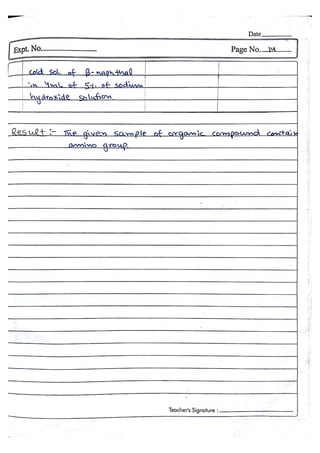 Date
Expt. No.
Page No. 14
cold sol. of β-naphthal
in 4mL of 5% of sodium
hydroxide solution.
Result :- The given sample of organic compound contain
amino group.
Teacher's Signature :